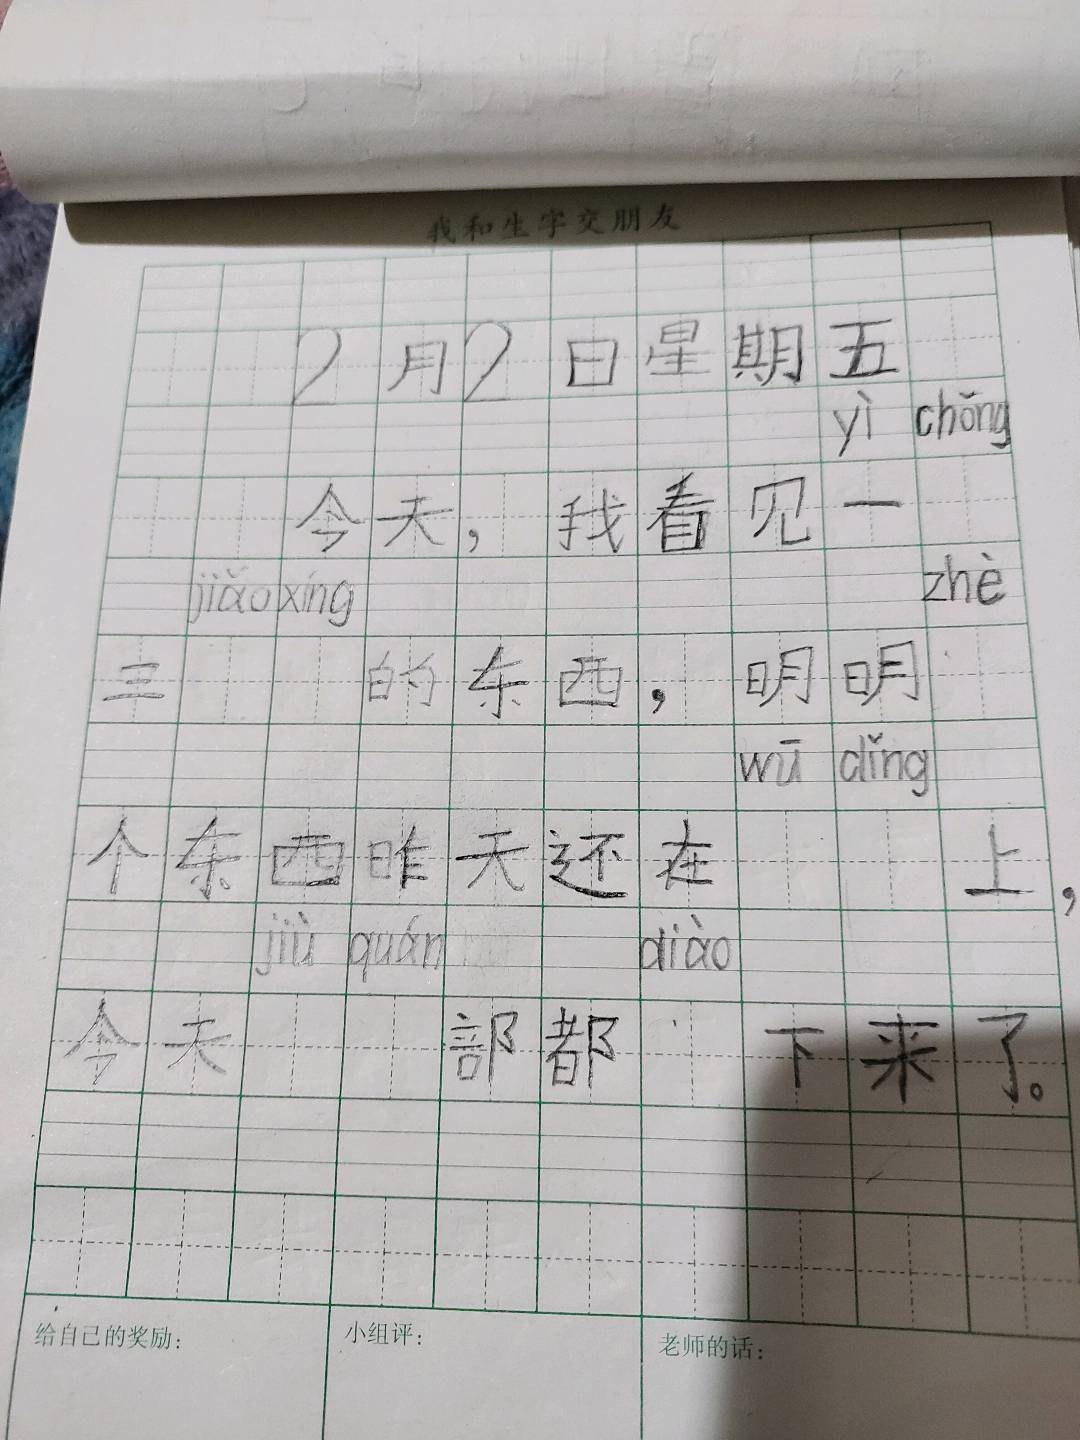 我和生字交朋友
2月2日星期五
yì chǒng
今天，我看见一
jiǎo xíng zhè
三 的东西，明明
wū dǐng
个东西昨天还在 上，
jiù quán diào
今天 部都 下来了。
给自己的奖励： 小组评： 老师的话：